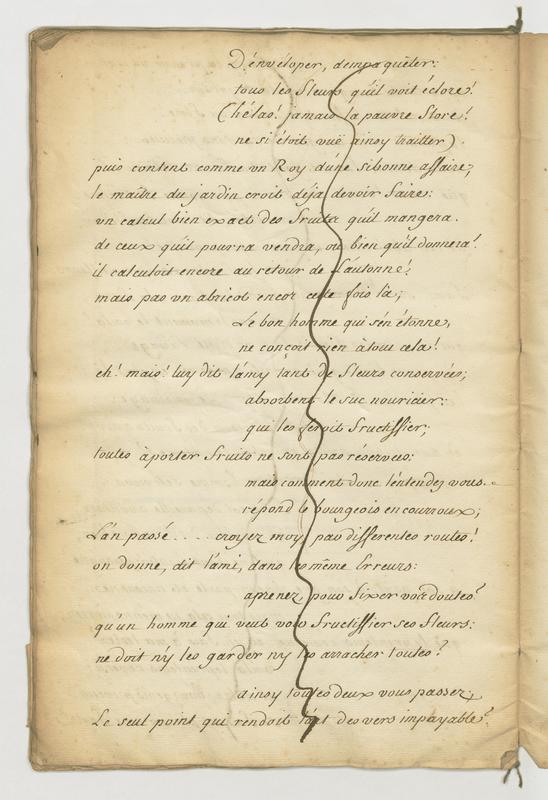 D'énveloper, dempaquêter:
tous les fleurs qu'il voit éclore!
(hélas! jamais la pauvre flore!
ne si étoit vuë ainsy traitter).
puis content comme vn Roy dune si bonne affaire,
le maître du jardin croit déja devoir faire:
vn calcul bien exact des fruits qu'il mangera.
de ceux qu'il pourra vendra, ou bien qu'il donnera!
il calculoit encore au retour de l'autonne!
mais pas vn abricot encor cette fois là;
Le bon homme qui s'én étonne,
ne conçoit rien à tout cela!
eh! mais! luy dit l'ámy tant de fleurs conservées;
absorbent le suc nouricier:
qui les feroit fructiffier;
toutes à porter fruits ne sont pas réservees:
mais comment donc l'entendez vous..
répond le bourgeois en courroux;
L'án passé.... croyez moy pas differentes routes!
on donne, dit l'ámi, dans les même Erreurs:
aprenez pour fixer vos doutes?
qu'un homme qui veut voir fructiffier ses fleurs:
ne doit n'y les garder n'y les arracher toutes?
ainsy toutes deux vous passez
Le seul point qui rendoit tant des vers impayable?